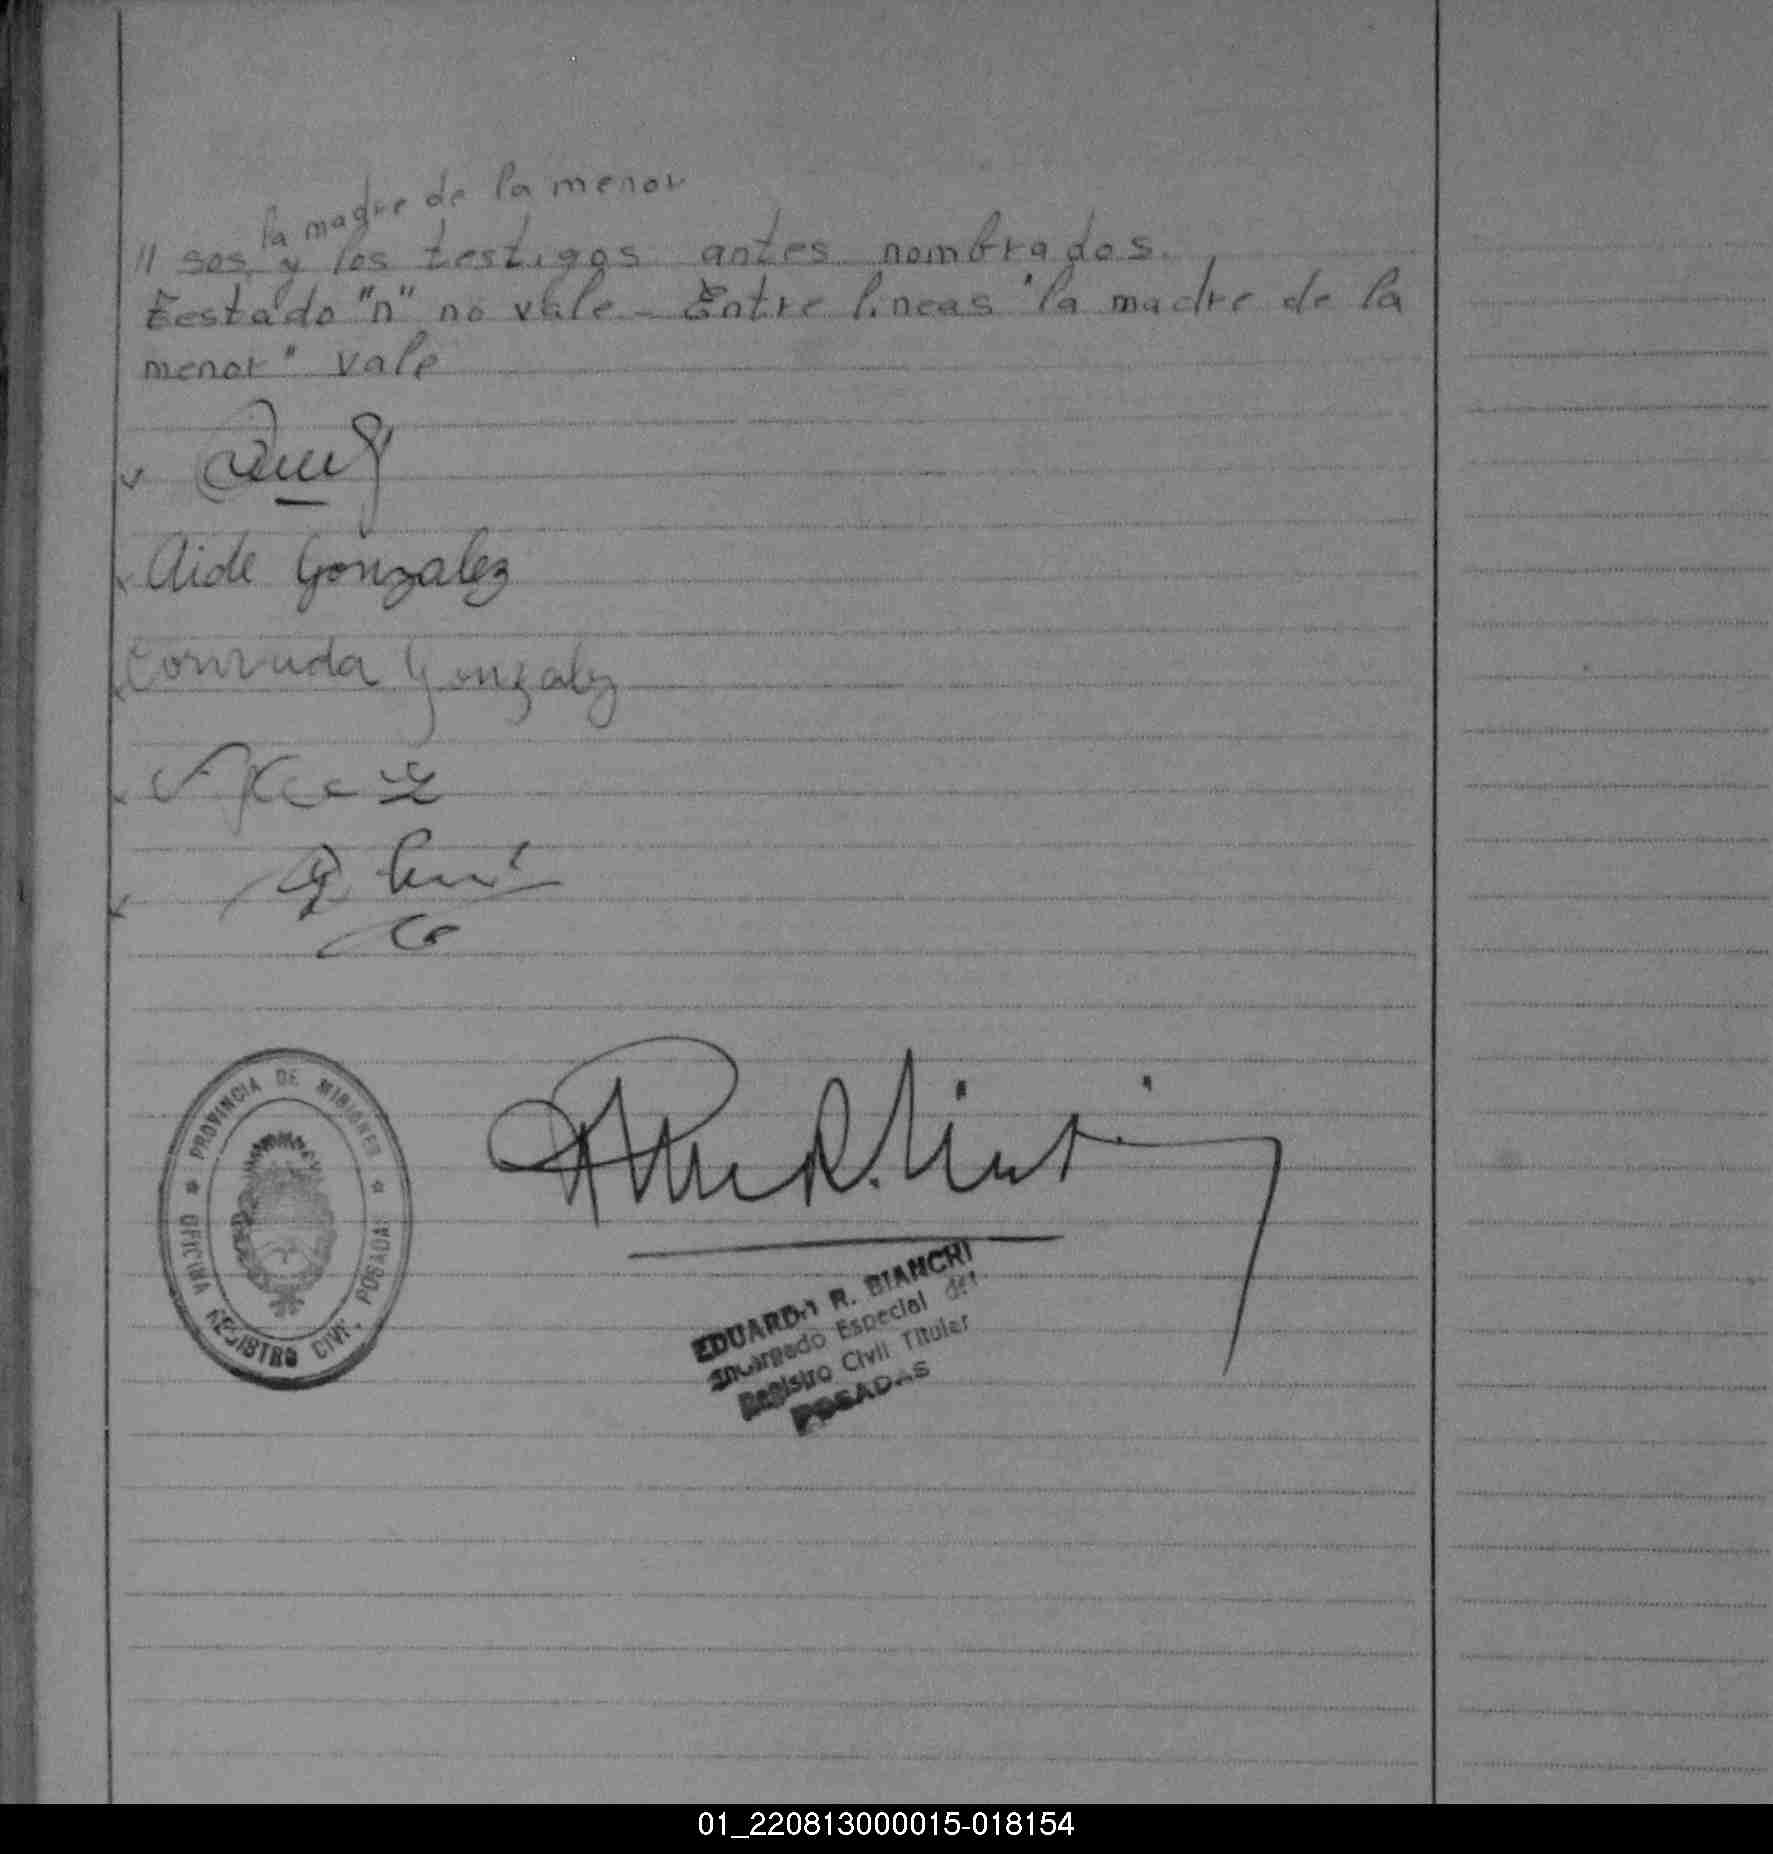 la madre de la menor
// sos, y los testigos antes nombrados.
Testado "n" no vale - Entre lineas "la madre de la
menor" vale
Aide Gonzalez
Gonzalez
PROVINCIA DE MISIONES
OFICINA REGISTRO CIVIL POSADAS
EDUARDO R. BIANCHI
Encargado Especial del
Registro Civil Titular
POSADAS
01_220813000015-018154